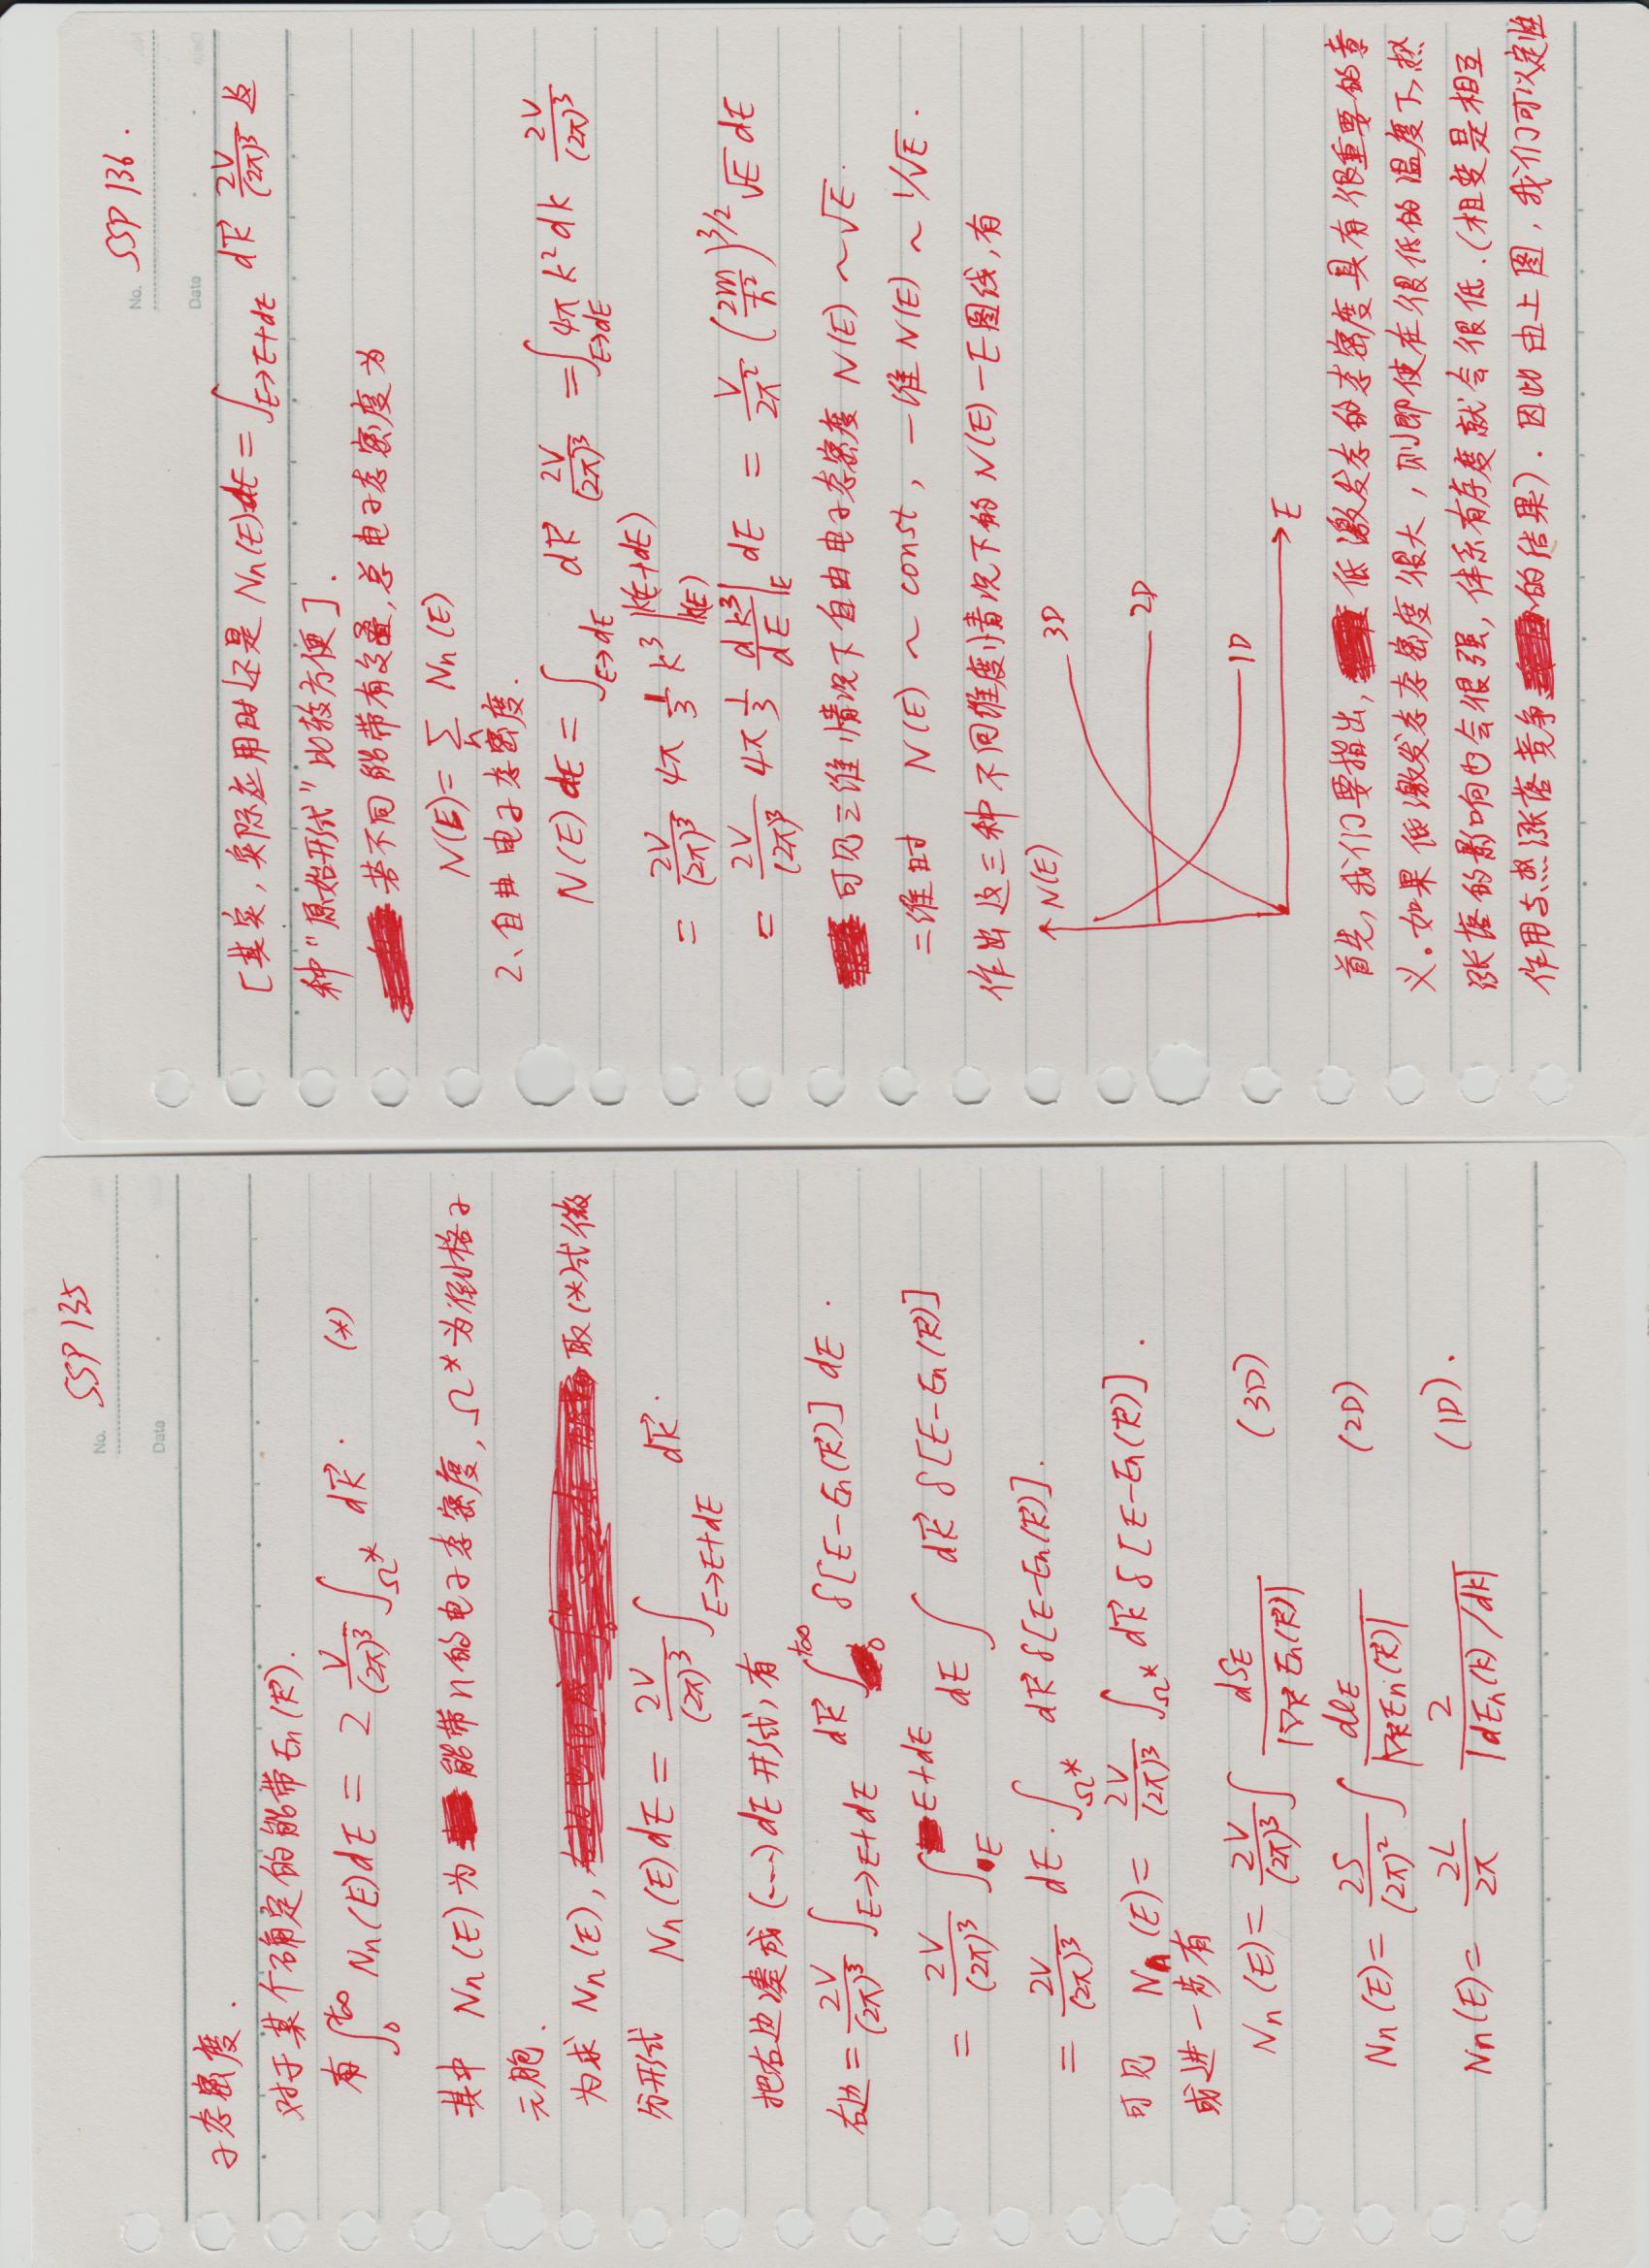 No. SSP 135
Date
子态密度.
对于某个确定的能带 En(k⃗).
有 ∫₀^{+∞} Nn(E)dE = 2 V/(2π)³ ∫_{Ω*} dk⃗. (*)
其中 Nn(E)为 能带n的电子态密度, Ω*为倒格子
元胞.
为求 Nn(E), 取(*)式微
分形式 Nn(E)dE = 2V/(2π)³ ∫_{E→E+dE} dk⃗.
把右边凑成(……)dE形式, 有
右边 = 2V/(2π)³ ∫_{E→E+dE} dk⃗ ∫₀^{+∞} δ[E-En(k⃗)] dE.
= 2V/(2π)³ ∫_E^{E+dE} dE ∫ dk⃗ δ[E-En(k⃗)]
= 2V/(2π)³ dE · ∫_{Ω*} dk⃗ δ[E-En(k⃗)].
可见 Nn(E) = 2V/(2π)³ ∫_{Ω*} dk⃗ δ[E-En(k⃗)].
或进一步有
Nn(E) = 2V/(2π)³ ∫ dS_E/|∇_k⃗ En(k⃗)| (3D)
Nn(E) = 2S/(2π)² ∫ dl_E/|∇_k⃗ En(k⃗)| (2D)
Nn(E) = 2L/2π 2/|dEn(k)/dk| (1D).
No. SSP 136.
Date
[其实, 实际应用时还是 Nn(E)dE = ∫_{E→E+dE} dk⃗ 2V/(2π)³ 这
种"原始形式"比较方便].
若不同能带有交叠, 总电子态密度为
N(E) = Σ_n Nn(E)
2、自由电子态密度.
N(E)dE = ∫_{E→dE} dk⃗ 2V/(2π)³ = ∫_{E→dE} 4πk²dk 2V/(2π)³
= 2V/(2π)³ 4π 1/3 k³ |_{k(E)}^{k(E+dE)}
= 2V/(2π)³ 4π 1/3 dk³/dE|_E dE = V/2π² (2m/ħ²)^{3/2} √E dE
可见三维情况下自由电子态密度 N(E) ~ √E.
二维时 N(E) ~ const, 一维 N(E) ~ 1/√E.
作出这三种不同维度情况下的 N(E)-E图线, 有
N(E)
3D
2D
1D
E
首先, 我们要指出, 低激发态的态密度具有很重要的意
义。如果低激发态态密度很大, 则即使在很低的温度下, 热
涨落的影响也会很强, 体系有序度就会很低.(相变是相互
作用与热涨落竞争 的结果). 因此由上图, 我们可以定性